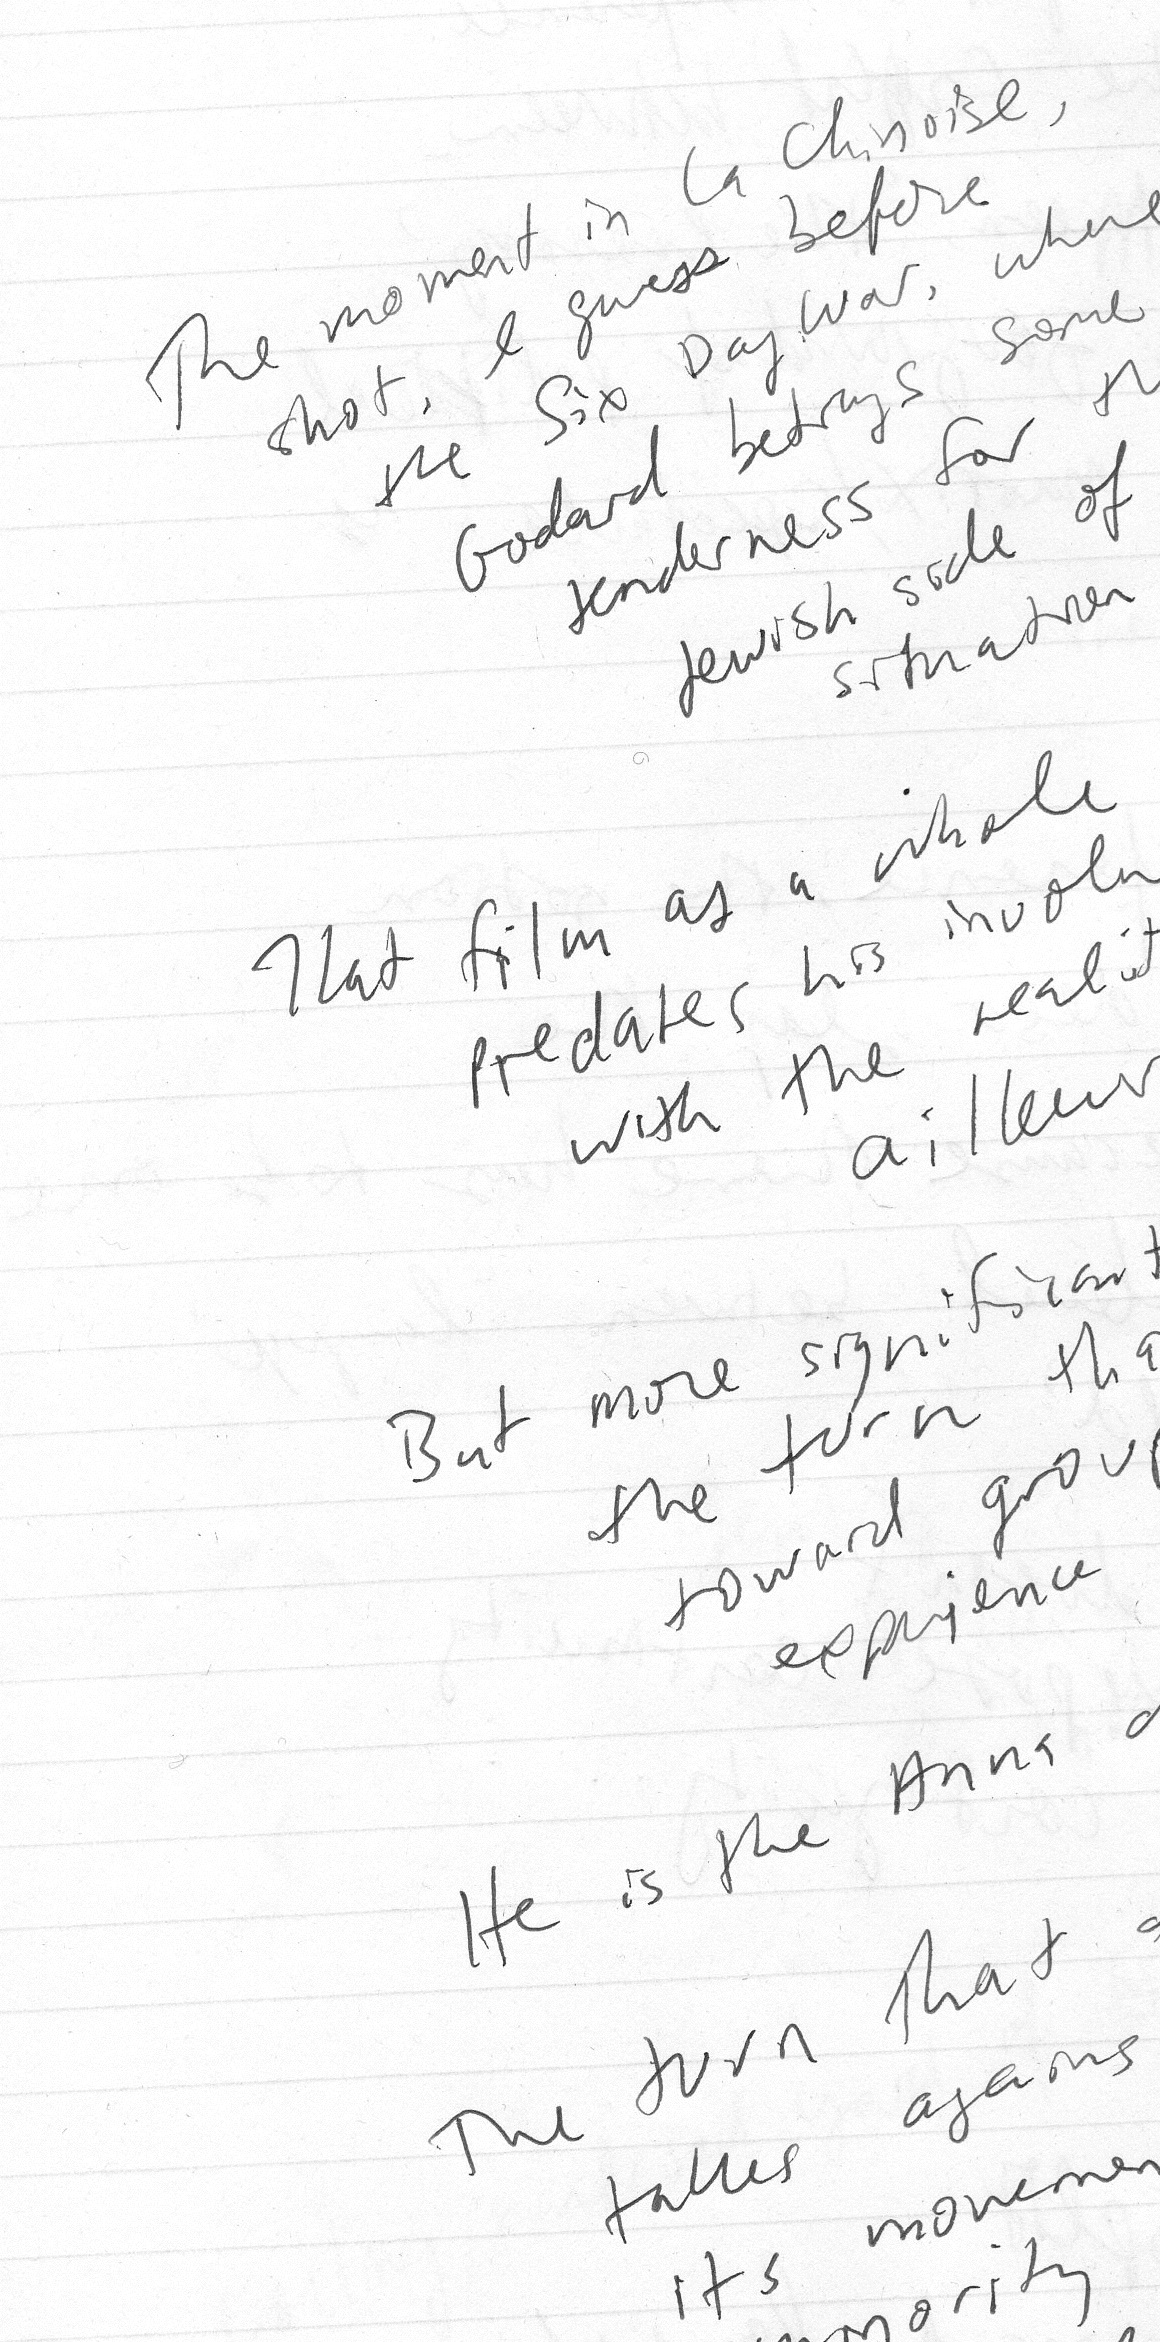 The moment in La Chinoise,
shot, I guess before
the Six Day War, where
Godard betrays some
tenderness for th
Jewish side of
situation
That film as a whole
predates his involv
with the realit
ailleur
But more significant
the turn tha
toward group
experience
He is the Anna
The turn that
takes agains
its movemen